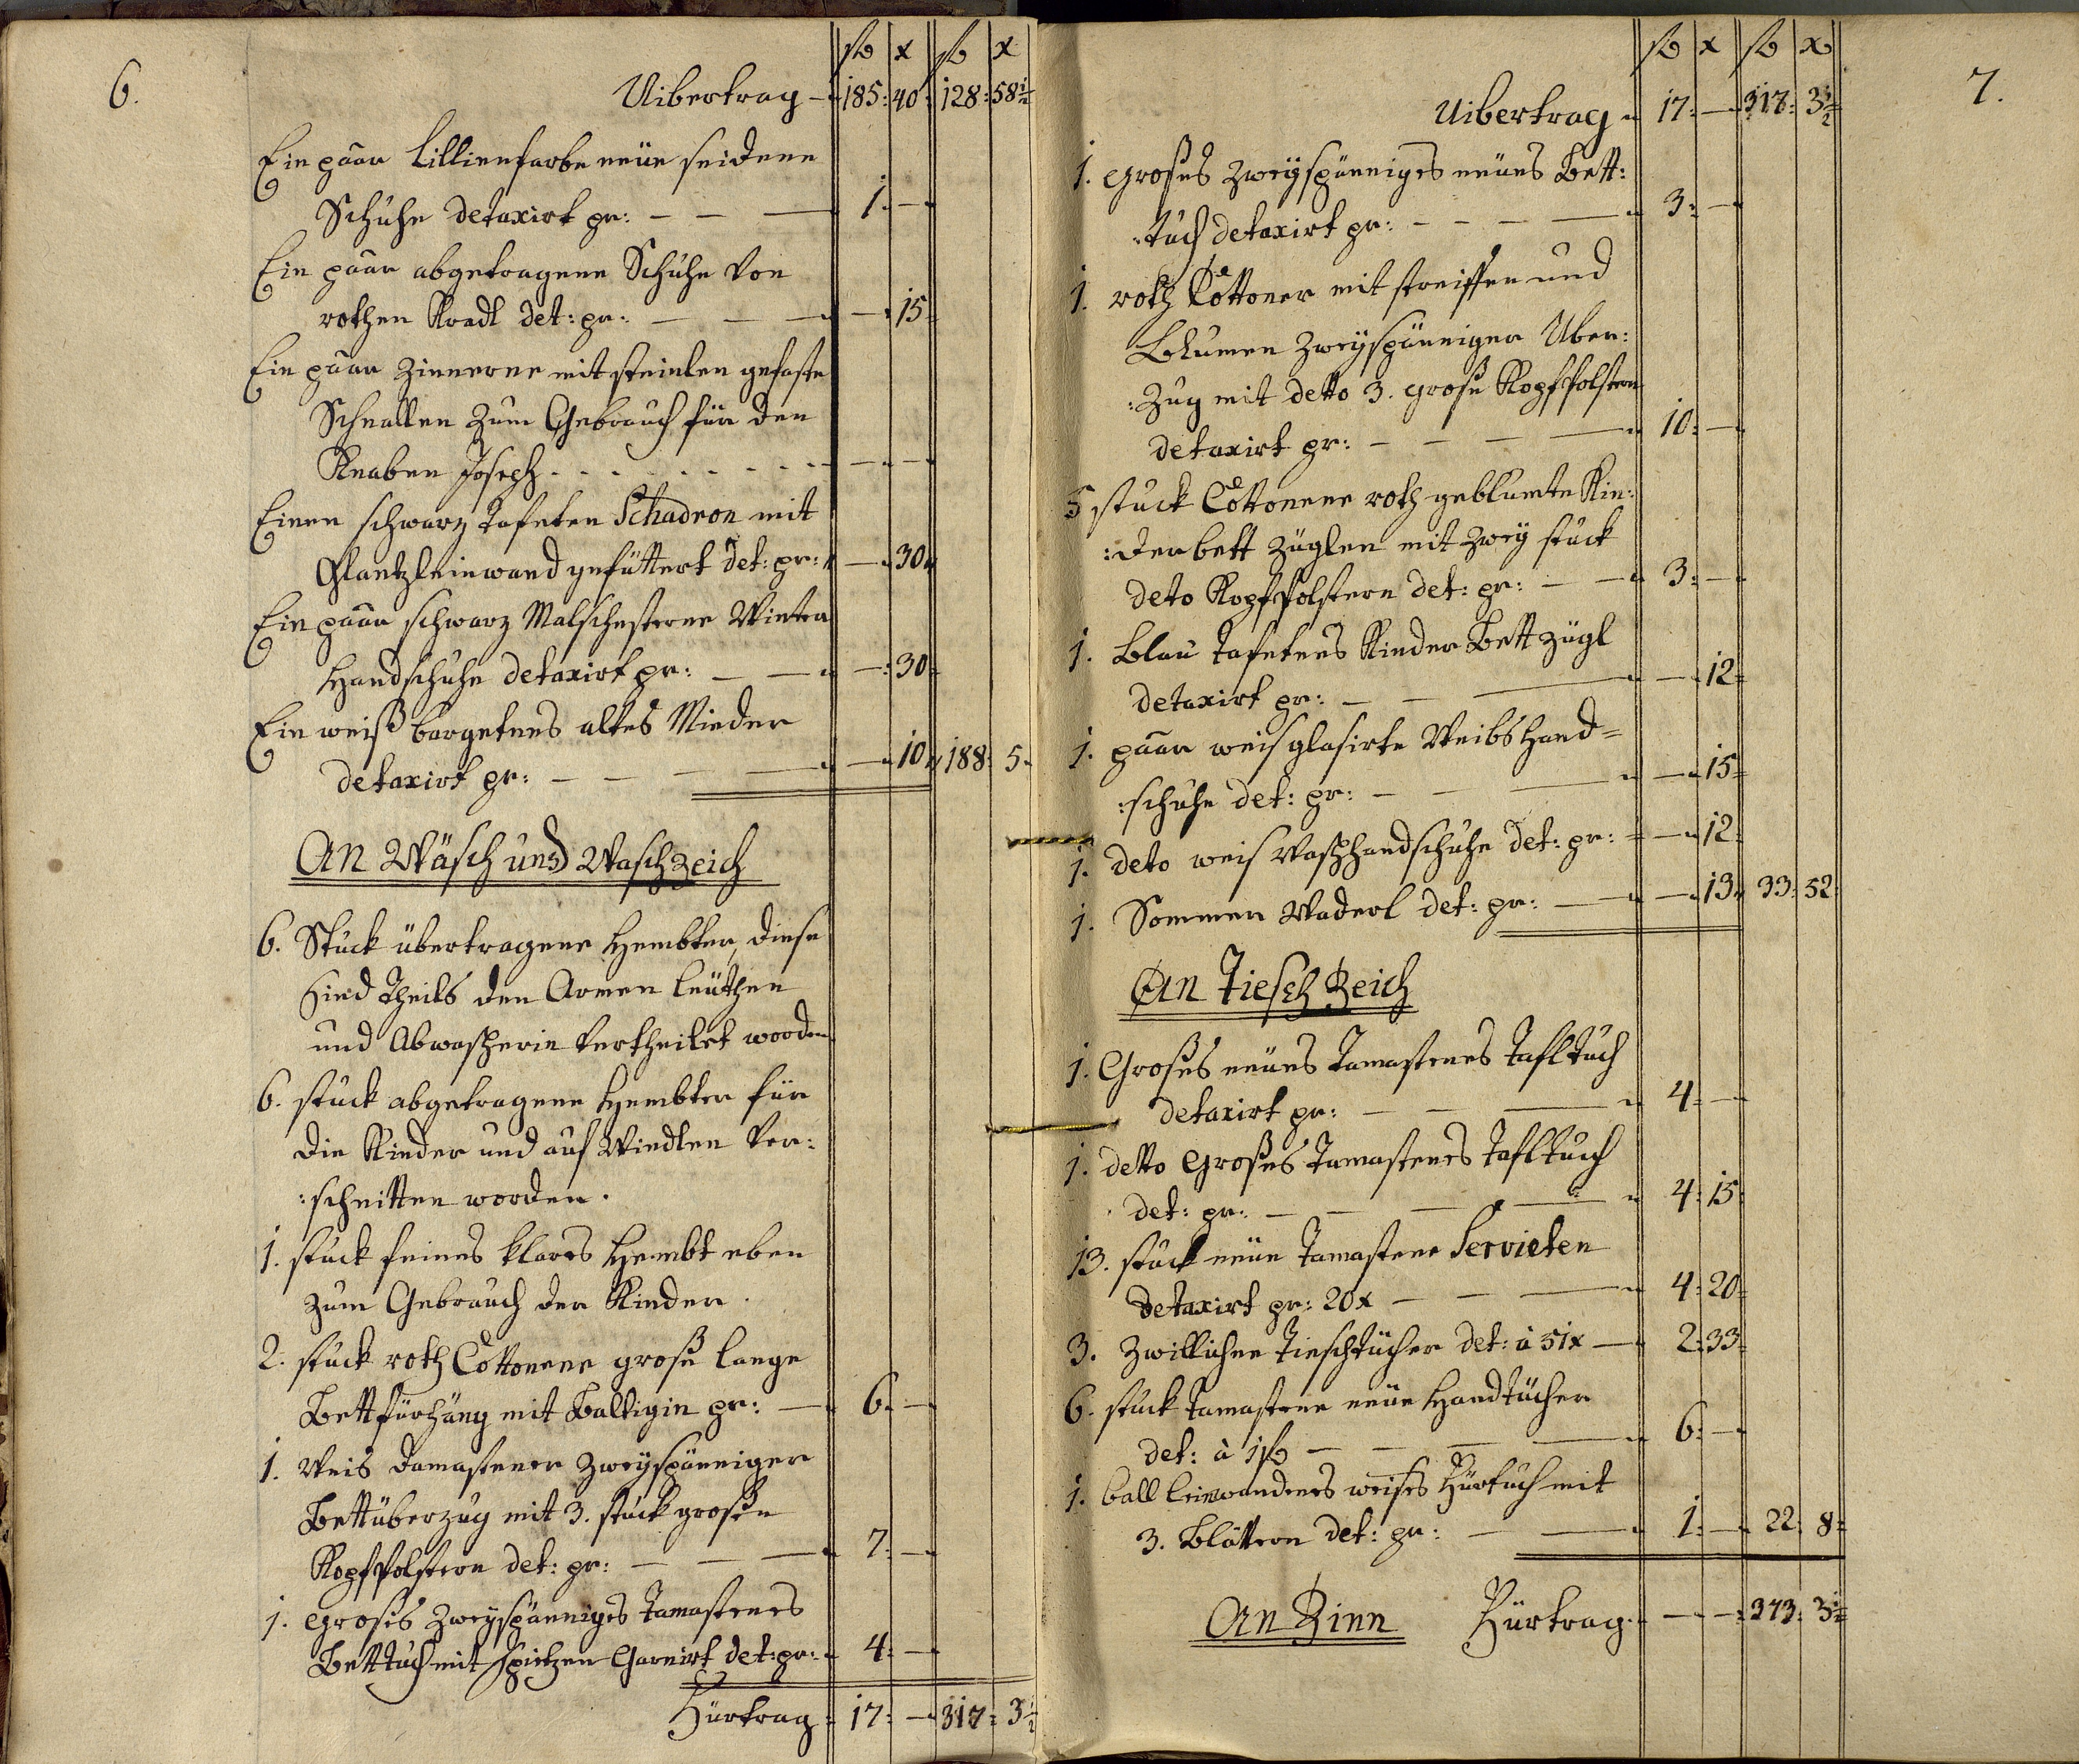 6.
fl x fl x
Uibertrag 185: 40: 128: 58½
Ein paar Lillienfarbe neüe seidene
Schuhe detaxirt pr: — — — 1: —
Ein paar abgetragene Schuhe von
rothen Kradl det: pr: — — — — 15
Ein paar Zinnerne mit steinlen gefaste
Schnallen zum Gebrauch für den
Knaben Joseph - - - - - - - — —
Einen schwarz Tafeten Schadron mit
Glantzleinwand gefüttert det: pr: — 30
Ein paar schwarz Malschesterne Winter
Handschuhe detaxirt pr: — — — 30
Ein weiß bargetnes altes Mieder
detaxirt pr: — — — — — 10 188: 5
An Wäsch und Waschzeich
6. Stuck übertragene Hembter, diese
sind Theils den Armen leüthen
und Abwascherin vertheilet worden
6. stuck abgetragene Hembter für
die Kinder und auf Windlen ver:
:schnitten worden.
1. stuck feines klares Hembt eben
zum Gebrauch der Kinder.
2. stuck roth Cottonene große lange
Bettfürhäng mit Baltigin pr: — 6: —
1. Weis Damastener zweyspänniger
Bettüberzug mit 3. stuck großen
Kopfpolstern det: pr: — — — 7: —
1. großes zweyspänniges Tamastenes
Bettuch mit spitzen Garnirt det: pr: 4: —
Fürtrag 17: — 317: 3½
7.
fl x fl x
Uibertrag 17: — 317: 3½
1. großes zweyspänniges neües Bett:
:tuch detaxirt pr: — — — — 3: —
1. roth Cottoner mit streiffen und
Blumen zweyspänniger Uber:
:zug mit detto 3. große Kopfpolstern
detaxirt pr: — — — — 10: —
5 stuck Cottonene roth geblumte Kin:
:derbett züglen mit zwey stuck
deto Kopfpolstern det: pr: — — 3: —
1. Blau tafetnes Kinder Bettzügl
detaxirt pr: — — — — 12
1. paar weis glasirte Weibs Hand=
:schuhe det: pr: — — — — 15
1. deto weis Waschhandschuhe det: pr: — 12
1. Sommer Waderl det: pr: — — 13 33: 52
An Tiesch Zeich
1. Großes neües Tamastenes Tafltuch
detaxirt pr: — — — 4: —
1. detto großes Tamastenes Tafltuch
det: pr: — — — — 4: 15
13. stuck neüe Tamastene Servieten
detaxirt pr: 20x — — — 4: 20
3. Zwillichene Tieschtücher det: à 51x — 2: 33
6. stuck Tamastene neüe Handtücher
det: à 1fl — — — 6: —
1. ball leinwandenes weises Fürtuch mit
3. Blättern det: pr: — — 1: — 22: 8
An Zinn Fürtrag — — 373: 3½